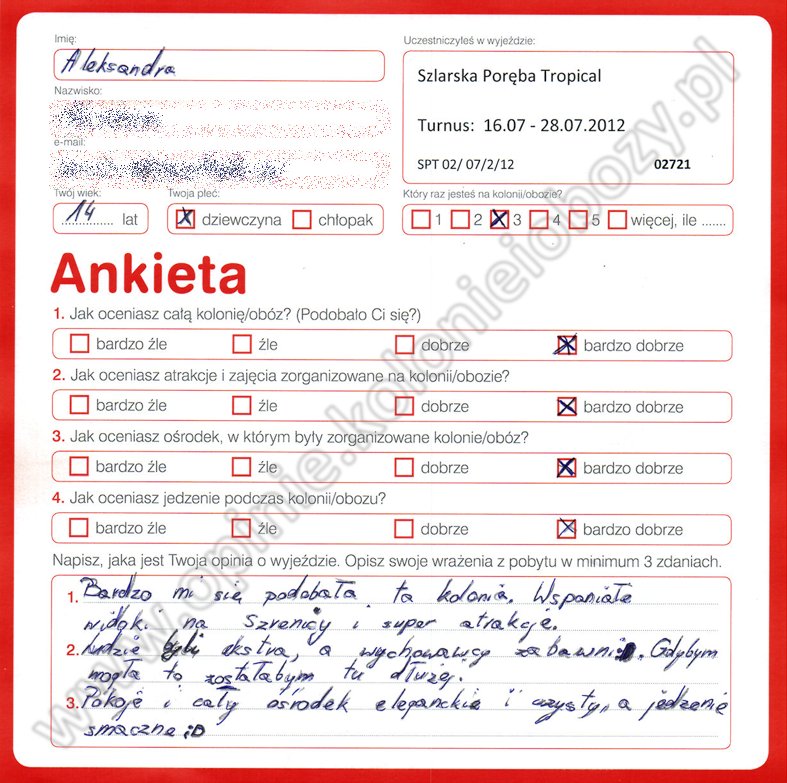 Imię:
Aleksandra
Nazwisko:
e-mail:
Twój wiek:
14 lat
Twoja płeć:
X dziewczyna chłopak
Uczestniczyłeś w wyjeździe:
Szlarska Poręba Tropical
Turnus: 16.07 - 28.07.2012
SPT 02/ 07/2/12 02721
Który raz jesteś na kolonii/obozie?
1 2 X 3 4 5 więcej, ile .......
Ankieta
1. Jak oceniasz całą kolonię/obóz? (Podobało Ci się?)
bardzo źle źle dobrze X bardzo dobrze
2. Jak oceniasz atrakcje i zajęcia zorganizowane na kolonii/obozie?
bardzo źle źle dobrze X bardzo dobrze
3. Jak oceniasz ośrodek, w którym były zorganizowane kolonie/obóz?
bardzo źle źle dobrze X bardzo dobrze
4. Jak oceniasz jedzenie podczas kolonii/obozu?
bardzo źle źle dobrze X bardzo dobrze
Napisz, jaka jest Twoja opinia o wyjeździe. Opisz swoje wrażenia z pobytu w minimum 3 zdaniach.
1. Bardzo mi się podobała ta kolonia. Wspaniałe
widoki na Szrenicy i super atrakcje.
2. Ludzie byli ekstra, a wychowawcy zabawni :D. Gdybym
mogła to zostałabym tu dłużej.
3. Pokoje i cały ośrodek eleganckie i czysty, a jedzenie
smaczne ;D
www.opinie.kolonieiobozy.pl